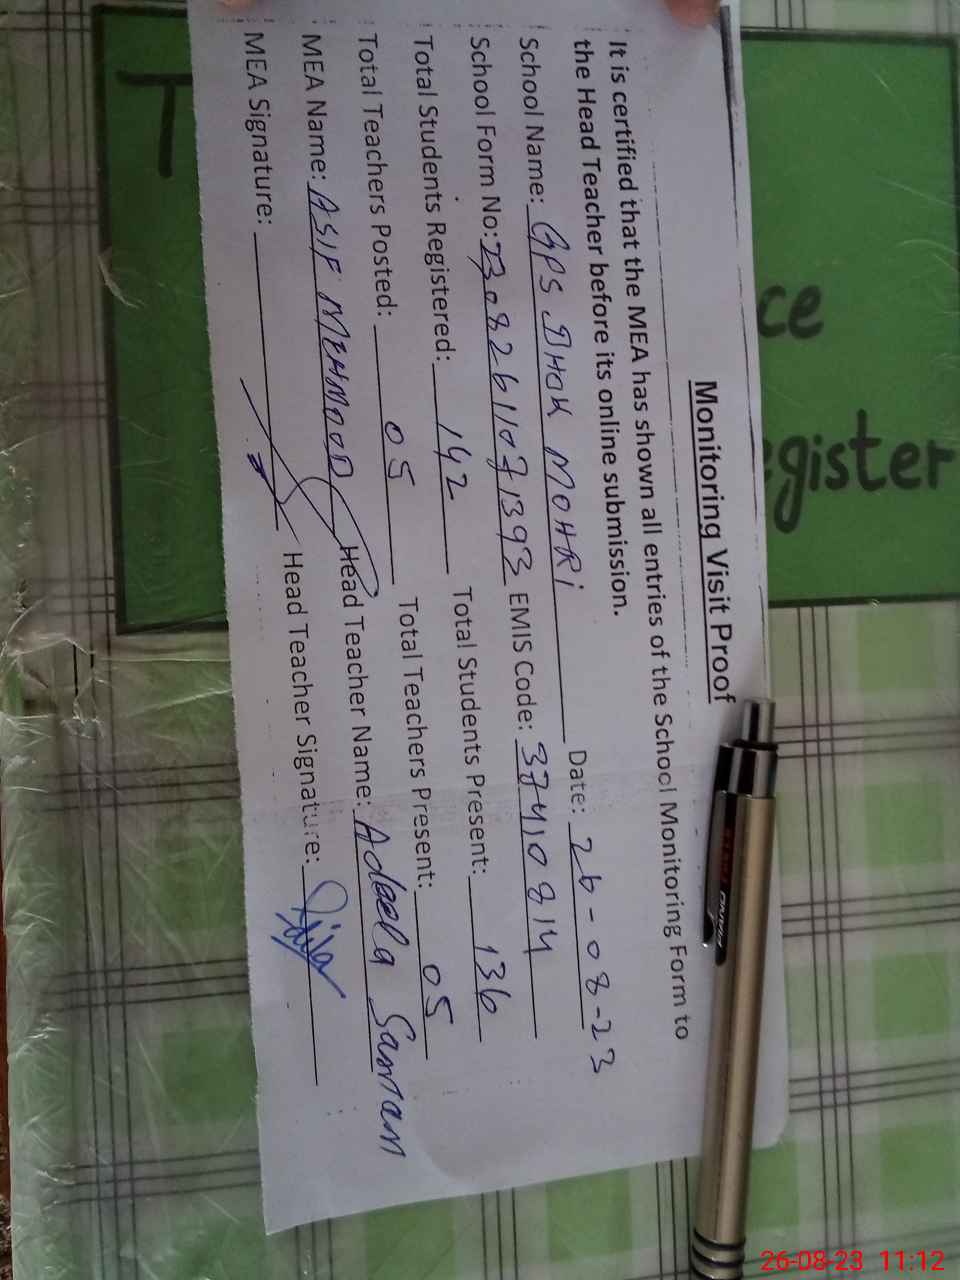 Monitoring Visit Proof
It is certified that the MEA has shown all entries of the School Monitoring Form to
the Head Teacher before its online submission.
School Name: GPS DHOK MOHRi Date: 26-08-23
School Form No: EMIS Code: 37410814
Total Students Registered: 142 Total Students Present: 136
Total Teachers Posted: 05 Total Teachers Present: 05
MEA Name: ASIF MEHMOOD Head Teacher Name: Adeela
MEA Signature: Head Teacher Signature:
ce
gister
26-08-23 11:12